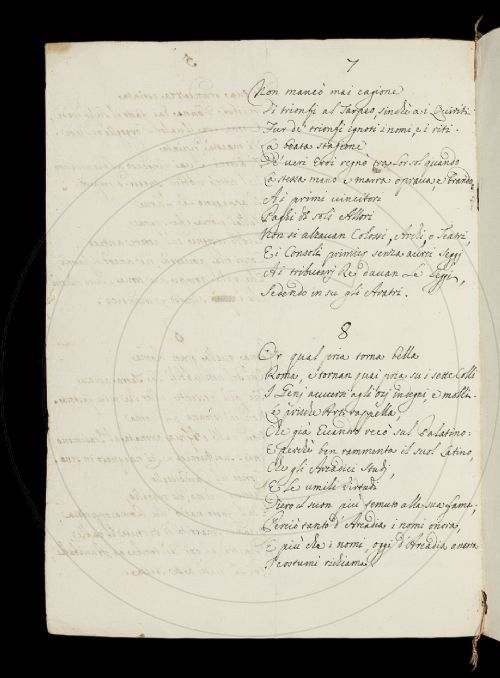 7
Non mancò mai cagione
Di trionfi al Tarpeo, sinchè a i Quiriti
Fur de' trionfi ignoti i nomi, e i riti.
La beata stagione
De' veri Eroi regnò tra lor sol quando
La stessa mano e marra oprava, e brando,
A i primi vincitori
Paghi di soli Allori
Non si alzavan Colossi, Archi, o Teatri,
E i Consoli primier senza aurei seggi
A i tributarj Re davan le Leggi,
Sedendo in su gli Aratri.
8
Or qual pria torna bella
Roma, e tornan quai pria su i sette Colli
I Genj avversi agli ozj indegni, e molli.
Le prische Arti rappella
Che già Evandro recò sul Palatino:
E perchè ben rammenta il suol Latino,
Che gli Arcadici studj,
E le umili Virtudi
Diero il suon più temuto alla sua fama;
Perciò tanto d'Arcadia i nomi onora,
E più che i nomi, oggi d'Arcadia ancora
I costumi richiama.